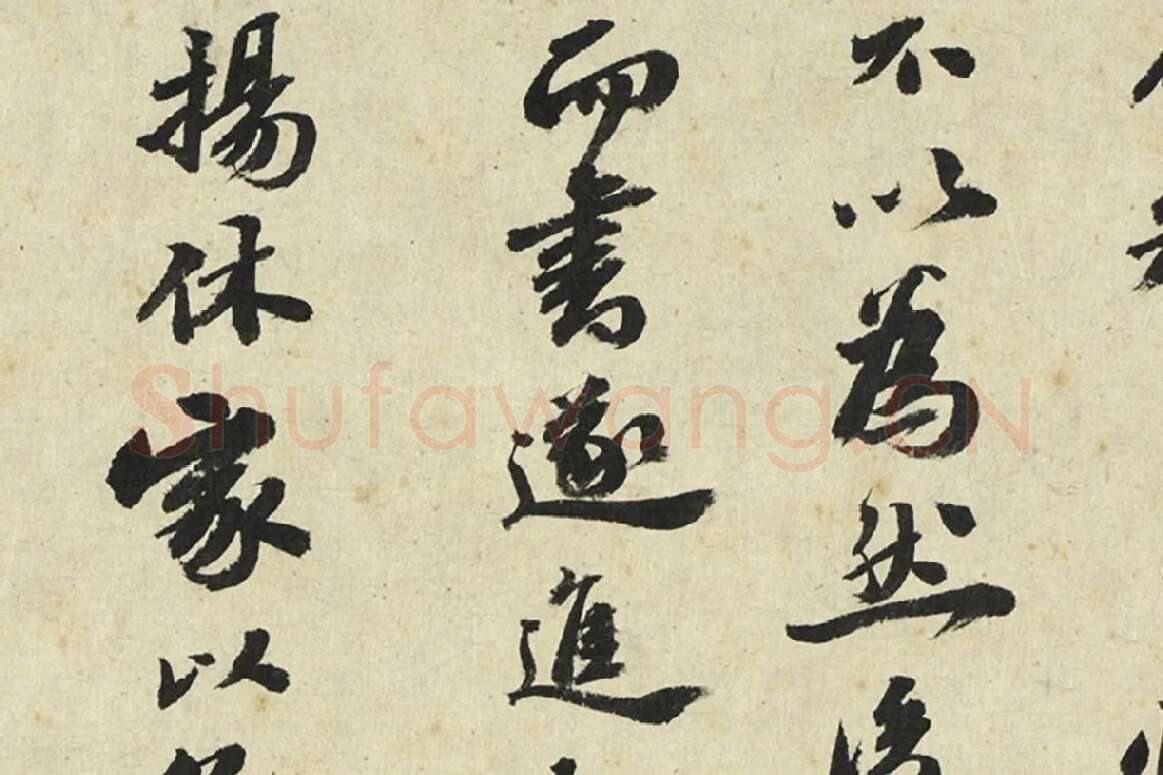 不以為然
而書遂進
揚休家以
Shufawang.CN